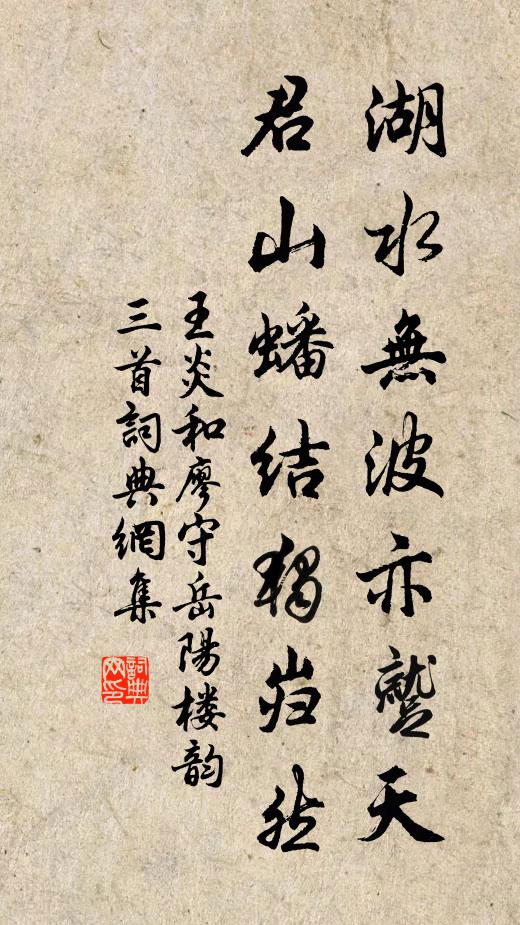 湖水無波亦蹵天
君山蟠結獨岿然
王炎和廖守岳陽楼韵
三首詞典網集
詞典
网印